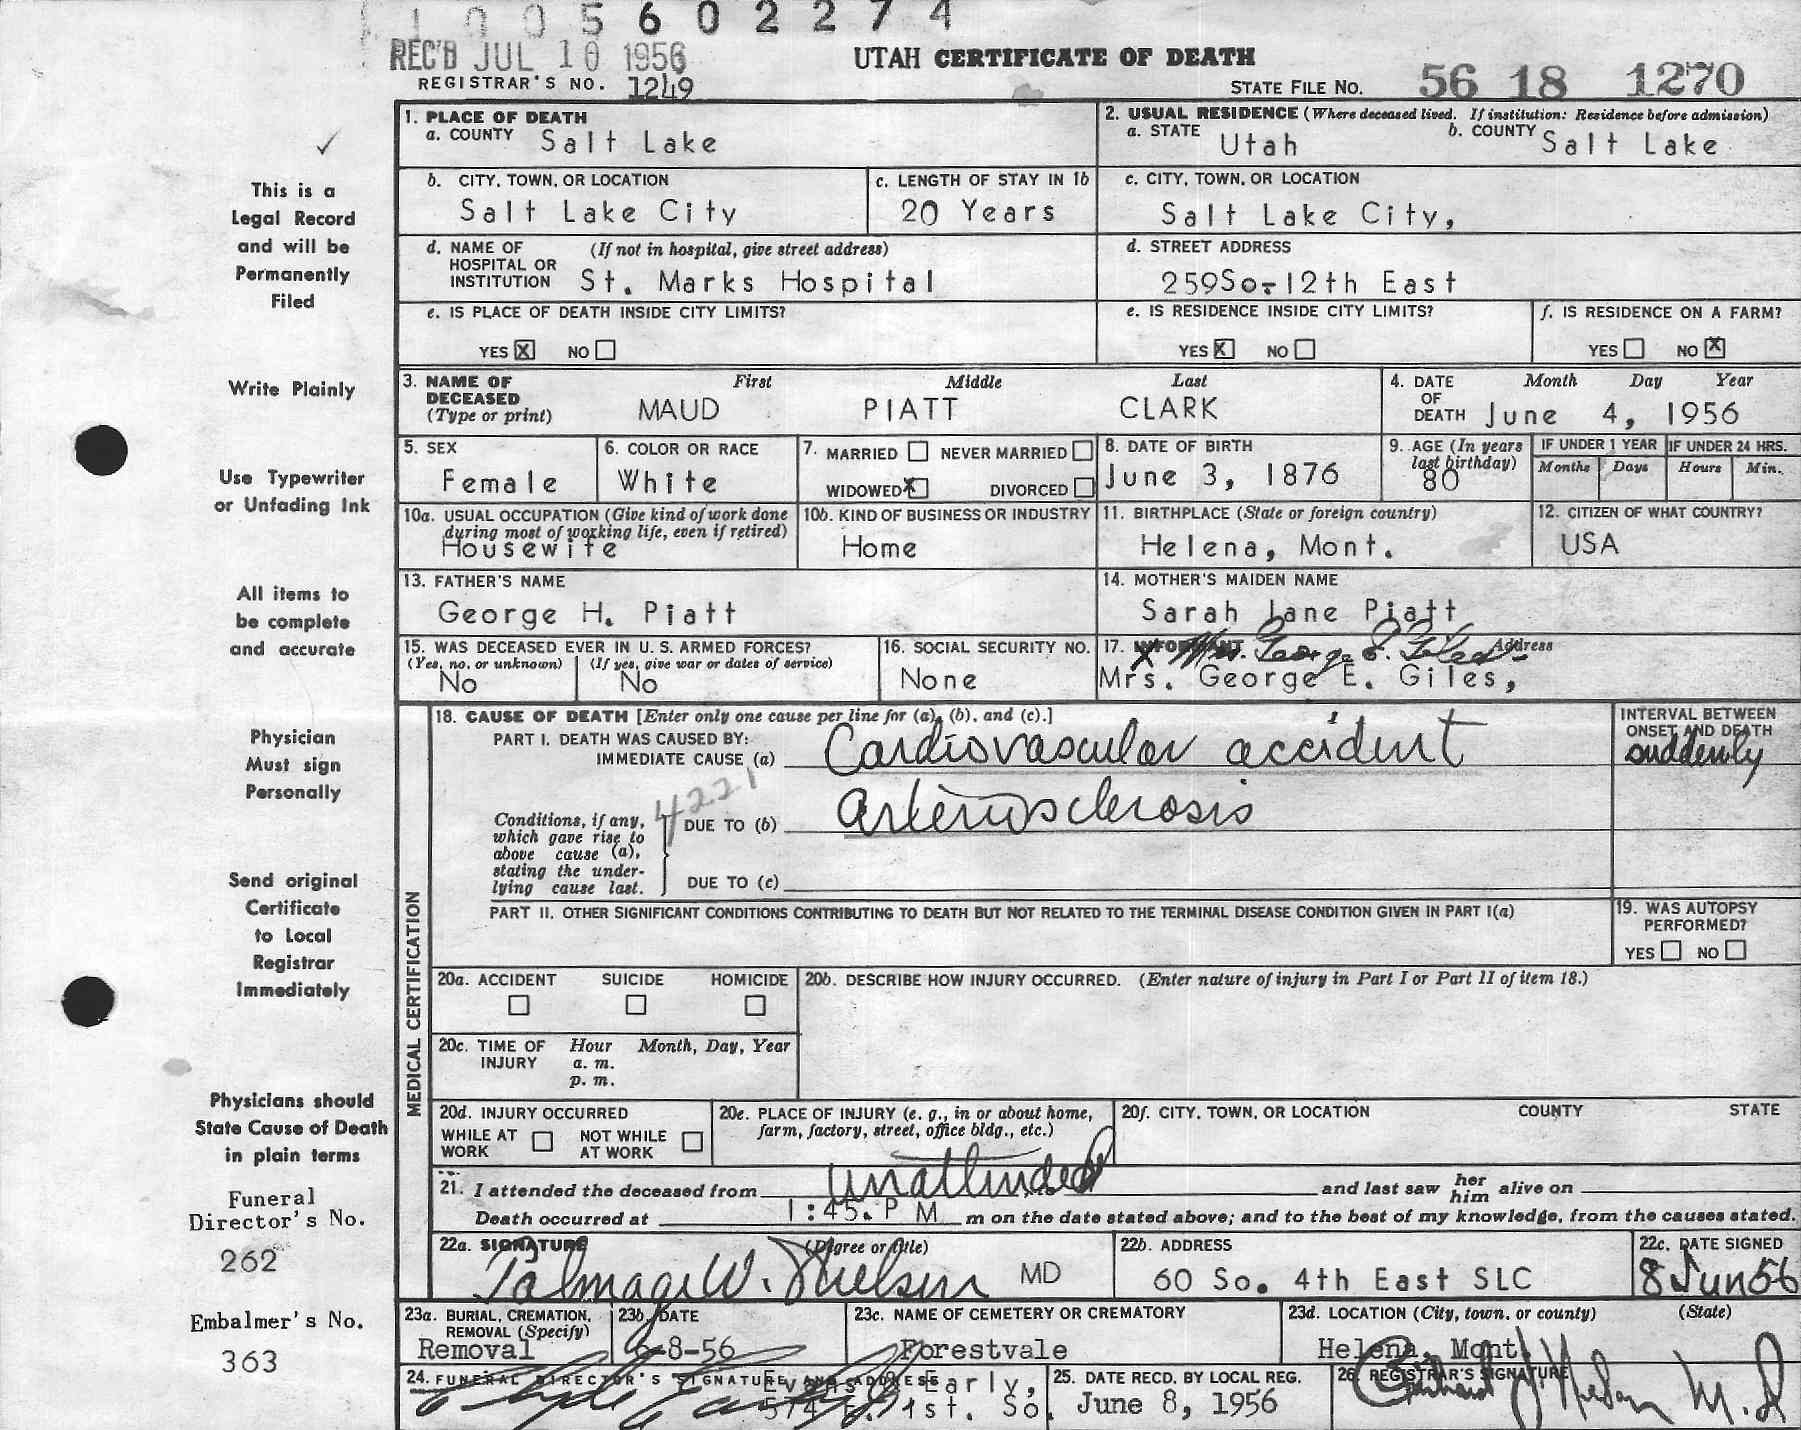 1005602274
REC'D JUL 10 1956
UTAH CERTIFICATE OF DEATH
REGISTRAR'S NO. 1249
STATE FILE NO. 56 18 1270
This is a
Legal Record
and will be
Permanently
Filed
Write Plainly
Use Typewriter
or Unfading Ink
All items to
be complete
and accurate
Physician
Must sign
Personally
Send original
Certificate
to Local
Registrar
Immediately
Physicians should
State Cause of Death
in plain terms
Funeral
Director's No.
262
Embalmer's No.
363
1. PLACE OF DEATH
a. COUNTY Salt Lake
2. USUAL RESIDENCE (Where deceased lived. If institution: Residence before admission)
a. STATE Utah b. COUNTY Salt Lake
b. CITY, TOWN, OR LOCATION
Salt Lake City
c. LENGTH OF STAY IN 1b
20 Years
c. CITY, TOWN, OR LOCATION
Salt Lake City,
d. NAME OF HOSPITAL OR INSTITUTION (If not in hospital, give street address)
St. Marks Hospital
d. STREET ADDRESS
259So-12th East
e. IS PLACE OF DEATH INSIDE CITY LIMITS?
YES X NO
e. IS RESIDENCE INSIDE CITY LIMITS?
YES X NO
f. IS RESIDENCE ON A FARM?
YES NO X
3. NAME OF DECEASED (Type or print)
First Middle Last
MAUD PIATT CLARK
4. DATE OF DEATH Month Day Year
June 4, 1956
5. SEX
Female
6. COLOR OR RACE
White
7. MARRIED NEVER MARRIED
WIDOWED X DIVORCED
8. DATE OF BIRTH
June 3, 1876
9. AGE (In years last birthday)
80
IF UNDER 1 YEAR
Months Days
IF UNDER 24 HRS.
Hours Min.
10a. USUAL OCCUPATION (Give kind of work done
during most of working life, even if retired)
Housewife
10b. KIND OF BUSINESS OR INDUSTRY
Home
11. BIRTHPLACE (State or foreign country)
Helena, Mont.
12. CITIZEN OF WHAT COUNTRY?
USA
13. FATHER'S NAME
George H. Piatt
14. MOTHER'S MAIDEN NAME
Sarah Jane Piatt
15. WAS DECEASED EVER IN U. S. ARMED FORCES?
(Yes, no, or unknown) (If yes, give war or dates of service)
No No
16. SOCIAL SECURITY NO.
None
17. INFORMANT Address
X Mrs. George E. Giles
Mrs. George E. Giles,
MEDICAL CERTIFICATION
18. CAUSE OF DEATH [Enter only one cause per line for (a), (b), and (c).]
PART I. DEATH WAS CAUSED BY:
IMMEDIATE CAUSE (a) Cardiovascular accident
INTERVAL BETWEEN
ONSET AND DEATH
suddenly
4221
Conditions, if any,
which gave rise to
above cause (a),
stating the under-
lying cause last.
DUE TO (b) arteriosclerosis
DUE TO (c)
PART II. OTHER SIGNIFICANT CONDITIONS CONTRIBUTING TO DEATH BUT NOT RELATED TO THE TERMINAL DISEASE CONDITION GIVEN IN PART I(a)
19. WAS AUTOPSY
PERFORMED?
YES NO
20a. ACCIDENT SUICIDE HOMICIDE
20b. DESCRIBE HOW INJURY OCCURRED. (Enter nature of injury in Part I or Part II of item 18.)
20c. TIME OF INJURY Hour Month, Day, Year
a. m.
p. m.
20d. INJURY OCCURRED
WHILE AT WORK NOT WHILE AT WORK
20e. PLACE OF INJURY (e. g., in or about home,
farm, factory, street, office bldg., etc.)
20f. CITY, TOWN, OR LOCATION COUNTY STATE
21. I attended the deceased from unattended and last saw her him alive on
Death occurred at 1:45.P M m on the date stated above; and to the best of my knowledge, from the causes stated.
22a. SIGNATURE (Degree or title)
Talmage W. Nielsen MD
22b. ADDRESS
60 So. 4th East SLC
22c. DATE SIGNED
8 Jun 56
23a. BURIAL, CREMATION,
REMOVAL (Specify)
Removal
23b. DATE
6-8-56
23c. NAME OF CEMETERY OR CREMATORY
Forestvale
23d. LOCATION (City, town, or county) (State)
Helena, Mont
24. FUNERAL DIRECTOR'S SIGNATURE AND ADDRESS
Evans & Early,
574 E. 1st. So.
25. DATE RECD. BY LOCAL REG.
June 8, 1956
26. REGISTRAR'S SIGNATURE
M.D